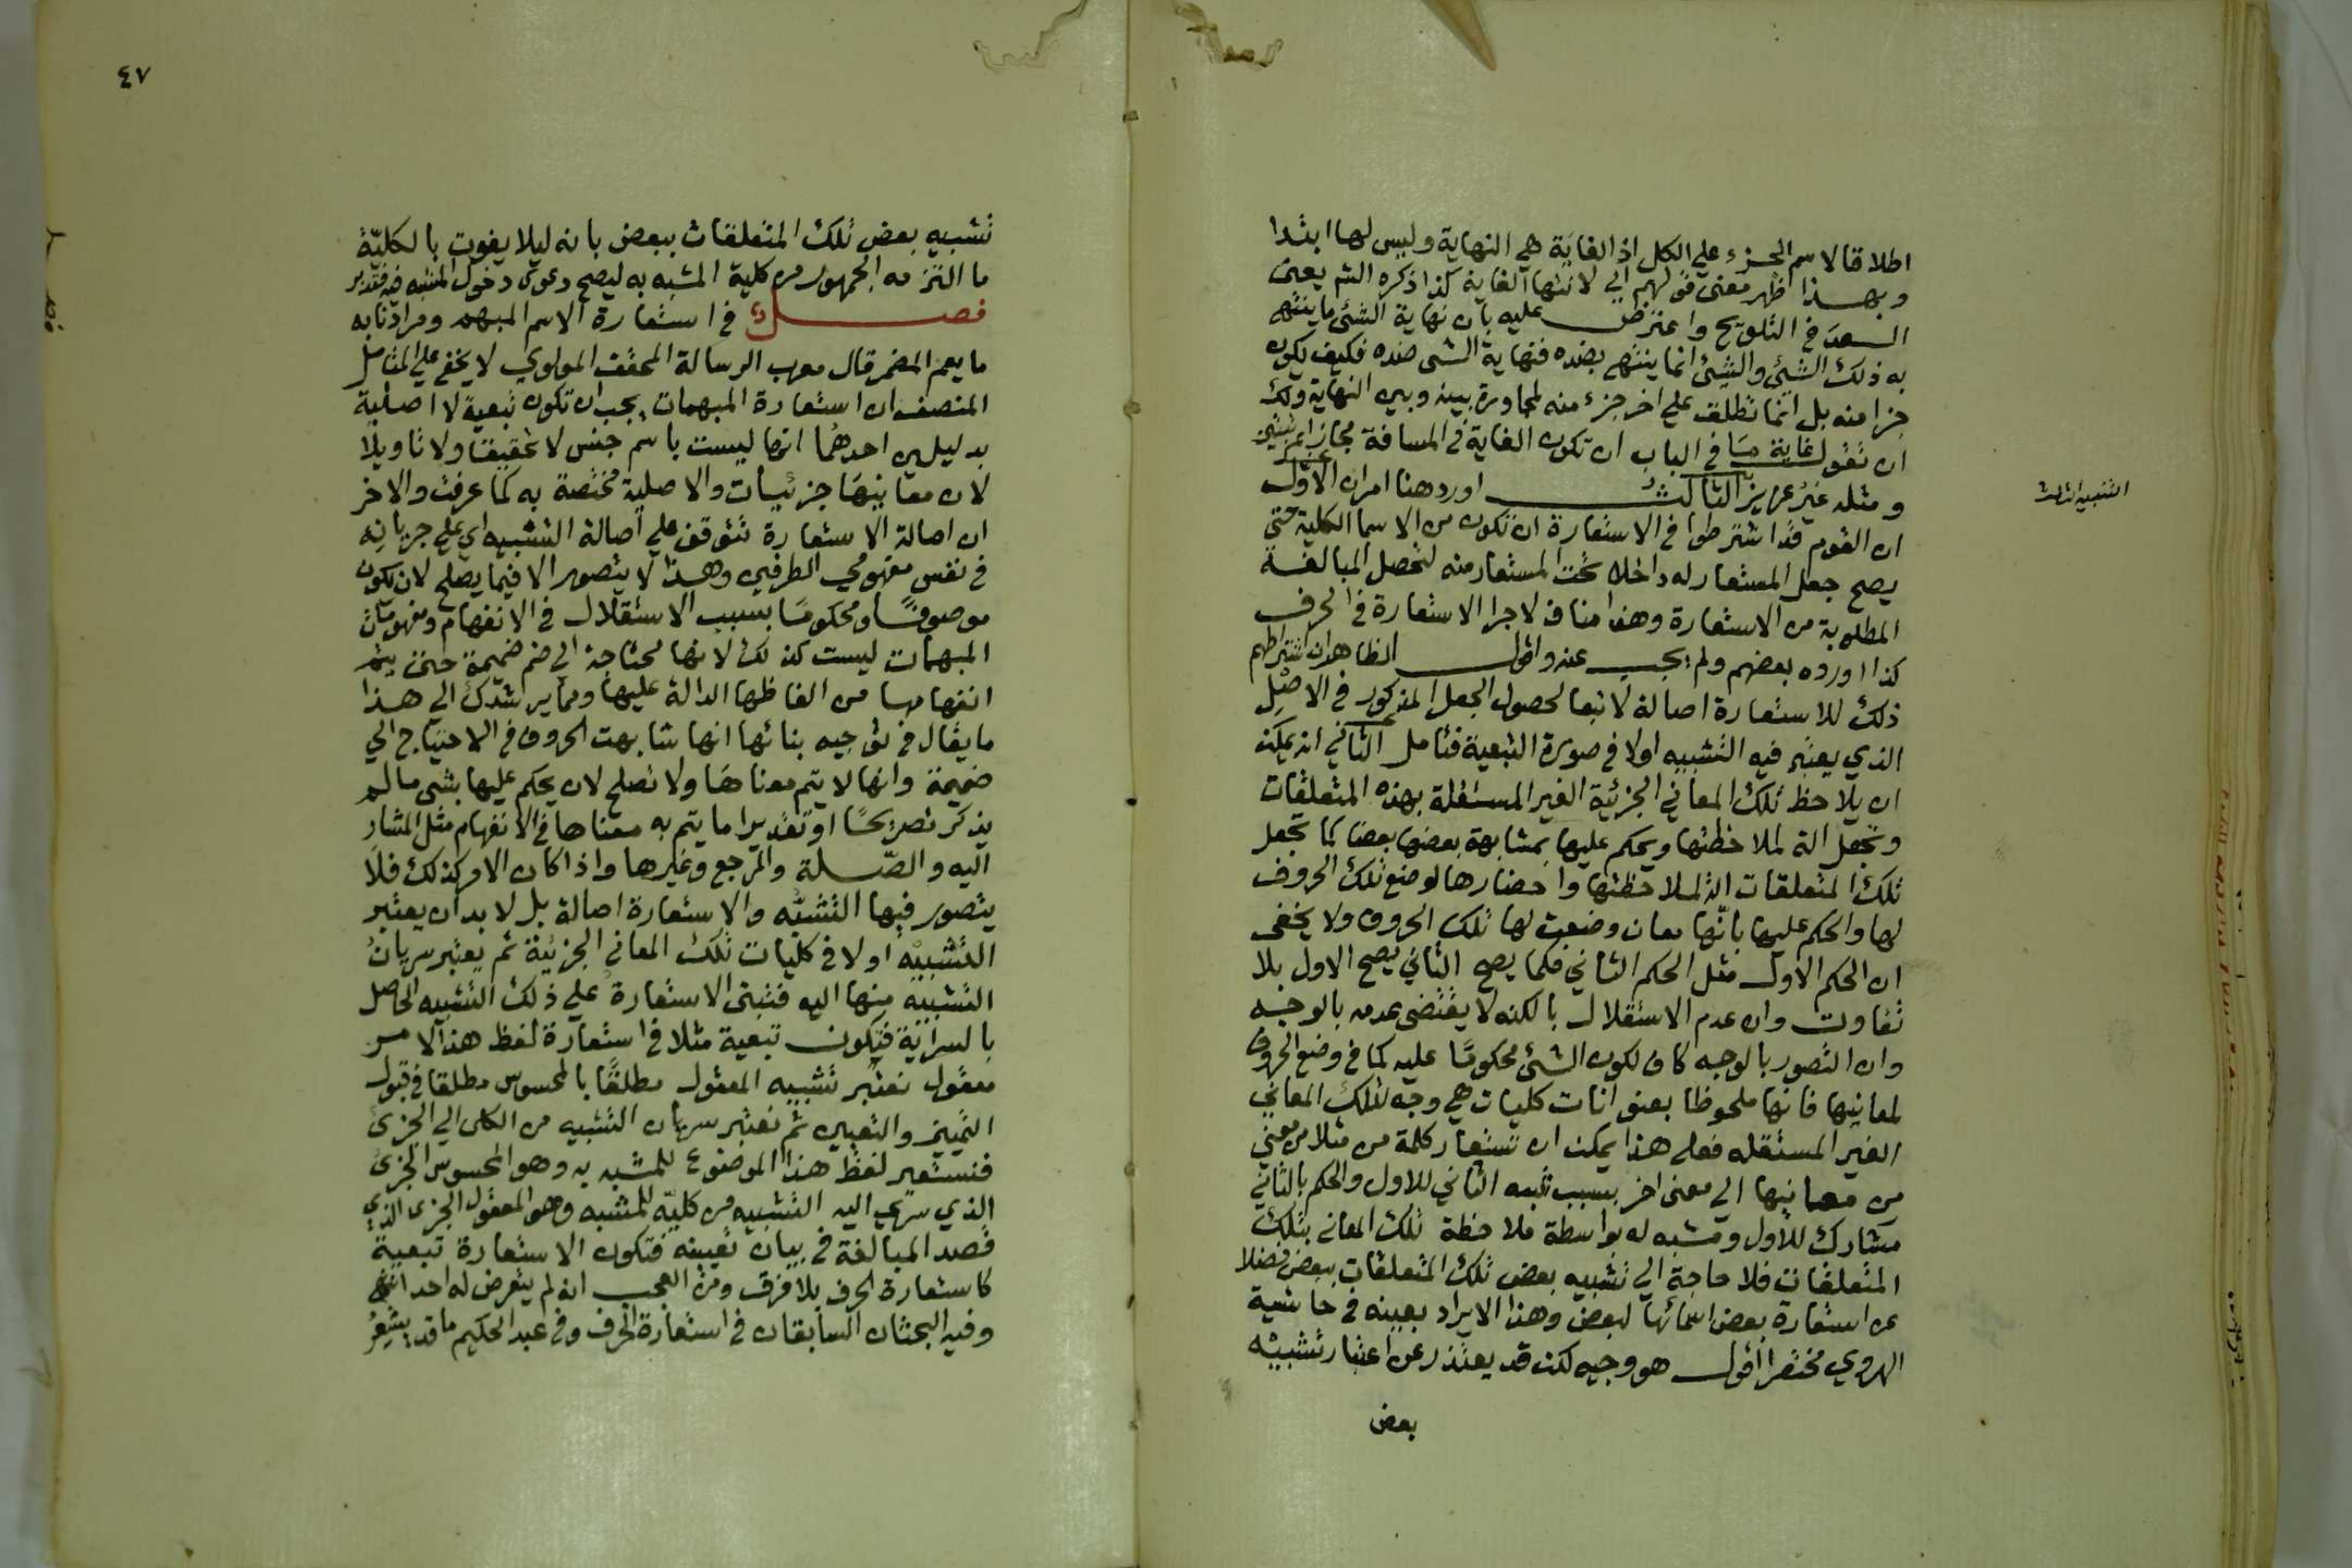 اطلاقا لاسم الجزء علي الكل اذ الغاية هي النهاية وليس لها ابتدا
وبهذا ظهر معنى قولهم الي لانتها الغاية كذا ذكره الشم يعنى
السعد في التلويح واعترض عليه بان نهاية الشئ ما ينتهى
به ذلك الشئ والشئ انما ينتهي بضده فنهاية الشى ضده فكيف يكون
جزا منه بل انما تطلق علي اخر جزء منه لمجاورة بينه وبين النهاية ولك
ان تقول غاية ما في الباب ان تكون الغاية في المسافة مجازا بمرتبتين
ومثله غير عزيز الثالث اورد هنا امران الاول
التنبيه الثالث
ان القوم قد اشترطوا في الاستعارة ان تكون من الاسما الكلية حتى
يصح جعل المستعار له داخلا تحت المستعار منه لتحصل المبالغة
المطلوبة من الاستعارة وهذا مناف لاجرا الاستعارة في الحرف
كذا اورده بعضهم ولم يجب عنه واقول الظاهر ان اشتراطهم
ذلك للاستعارة اصالة لا تبعا لحصول الجعل المذكور في الاصل
الذي يعتبر فيه التشبيه اولا في صورة التبعية فتامل الثاني انه يمكن
ان يلاحظ تلك المعاني الجزئية الغير المستقلة بهذه المتعلقات
وتجعل الة لملاحظتها ويحكم عليها بمشابهة بعضها بعضا كما تجعل
تلك المتعلقات الة لملاحظتها واحضارها لوضع تلك الحروف
لها والحكم عليها بانها معان وضعت لها تلك الحروف ولا يخفى
ان الحكم الاول مثل الحكم الثاني فكما يصح الثاني يصح الاول بلا
تفاوت وان عدم الاستقلال بالكنه لا يقتضى عدمه بالوجه
وان التصور بالوجه كاف لكون الشئ محكوما عليه كما في وضع الحروف
لمعانيها فانها ملحوظا بعنوانات كليات هي وجه لتلك المعاني
الغير المستقله فعلى هذا يمكن ان تستعار كلمة من مثلا من معني
من معانيها الي معنى اخر بسبب تشبيه الثاني للاول والحكم بالثاني
مشارك للاول ومشبه له بواسطة ملاحظة تلك المعانى بتلك
المتعلقات فلا حاجة الي تشبيه بعض تلك المتعلقات ببعض فضلا
عن استعارة بعض اسمائها لبعض وهذا الايراد بعينه في حاشية
الهروي مختصرا اقول هو وجيه لكن قد يعتذر عن اعتبار تشبيه
بعض
٤٧
تشبيه بعض تلك المتعلقات ببعض بانه ليلا يفوت بالكلية
ما التزمه الجمهور من كلية المشبه به ليصح دعوى دخول المشبه فيه فتدبر
فصل في استعارة الاسم المبهم ومرادنا به
ما يعم المضمر قال معرب الرسالة المحقق المولوي لا يخفى علي المتامل
المنصف ان استعارة المبهمات يجب ان تكون تبعية لا اصلية
بدليلين احدهما انها ليست باسم جنس لا تحقيقا ولا تاويلا
لان معانيها جزئيات والاصلية مختصة به كما عرفت والاخر
ان اصالة الاستعارة تتوقف علي اصالة التشبيه اي علي جريانه
في نفس مفهومي الطرفين وهذا لا يتصور الا فيما يصلح لان يكون
موصوفا ومحكوما بسبب الاستقلال في الانفهام ومفهومات
المبهمات ليست كذلك لانها محتاجة الي ضم ضميمة حتى يتم
انفهامها من الفاظها الدالة عليها ومما يرشدك الي هذا
ما يقال في توجيه بنائها انها شابهت الحروف في الاحتياج الي
ضميمة وانها لا يتم معناها ولا تصلح لان يحكم عليها بشى ما لم
يذكر تصريحا او تقديرا ما يتم به معناها في الانفهام مثل المشار
اليه والصلة والمرجع وغيرها واذا كان الامر كذلك فلا
يتصور فيها التشبيه والاستعارة اصالة بل لا بد ان يعتبر
التشبيه اولا في كليات تلك المعاني الجزئية ثم يعتبر سريان
التشبيه منها اليه فتبنى الاستعارة علي ذلك التشبيه الحاصل
بالسراية فتكون تبعية مثلا في استعارة لفظ هذا لامر
معقول نعتبر تشبيه المعقول مطلقا بالمحسوس مطلقا في قبول
التمييز والتعيين ثم نعتبر سريان التشبيه من الكلى الي الجزئ
فنستعير لفظ هذا الموضوع للمشبه به وهو المحسوس الجزئ
الذي سري اليه التشبيه من كليه للمشبه وهو المعقول الجزى الذي
قصد المبالغة في بيان تعيينه فتكون الاستعارة تبعية
كاستعارة الحرف بلا فرق ومن العجب انه لم يتعرض له احد انتهى
وفيه البحثان السابقان في استعارة الحرف وفي عبد الحكيم ما قد يشعر